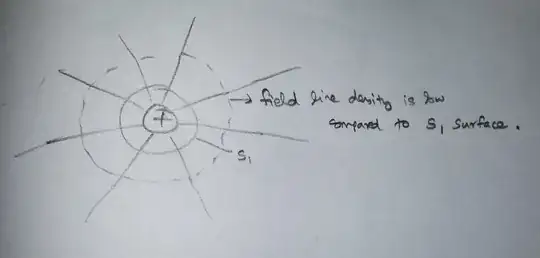 +
→ field line density is low
compared to S₁ surface.
S₁